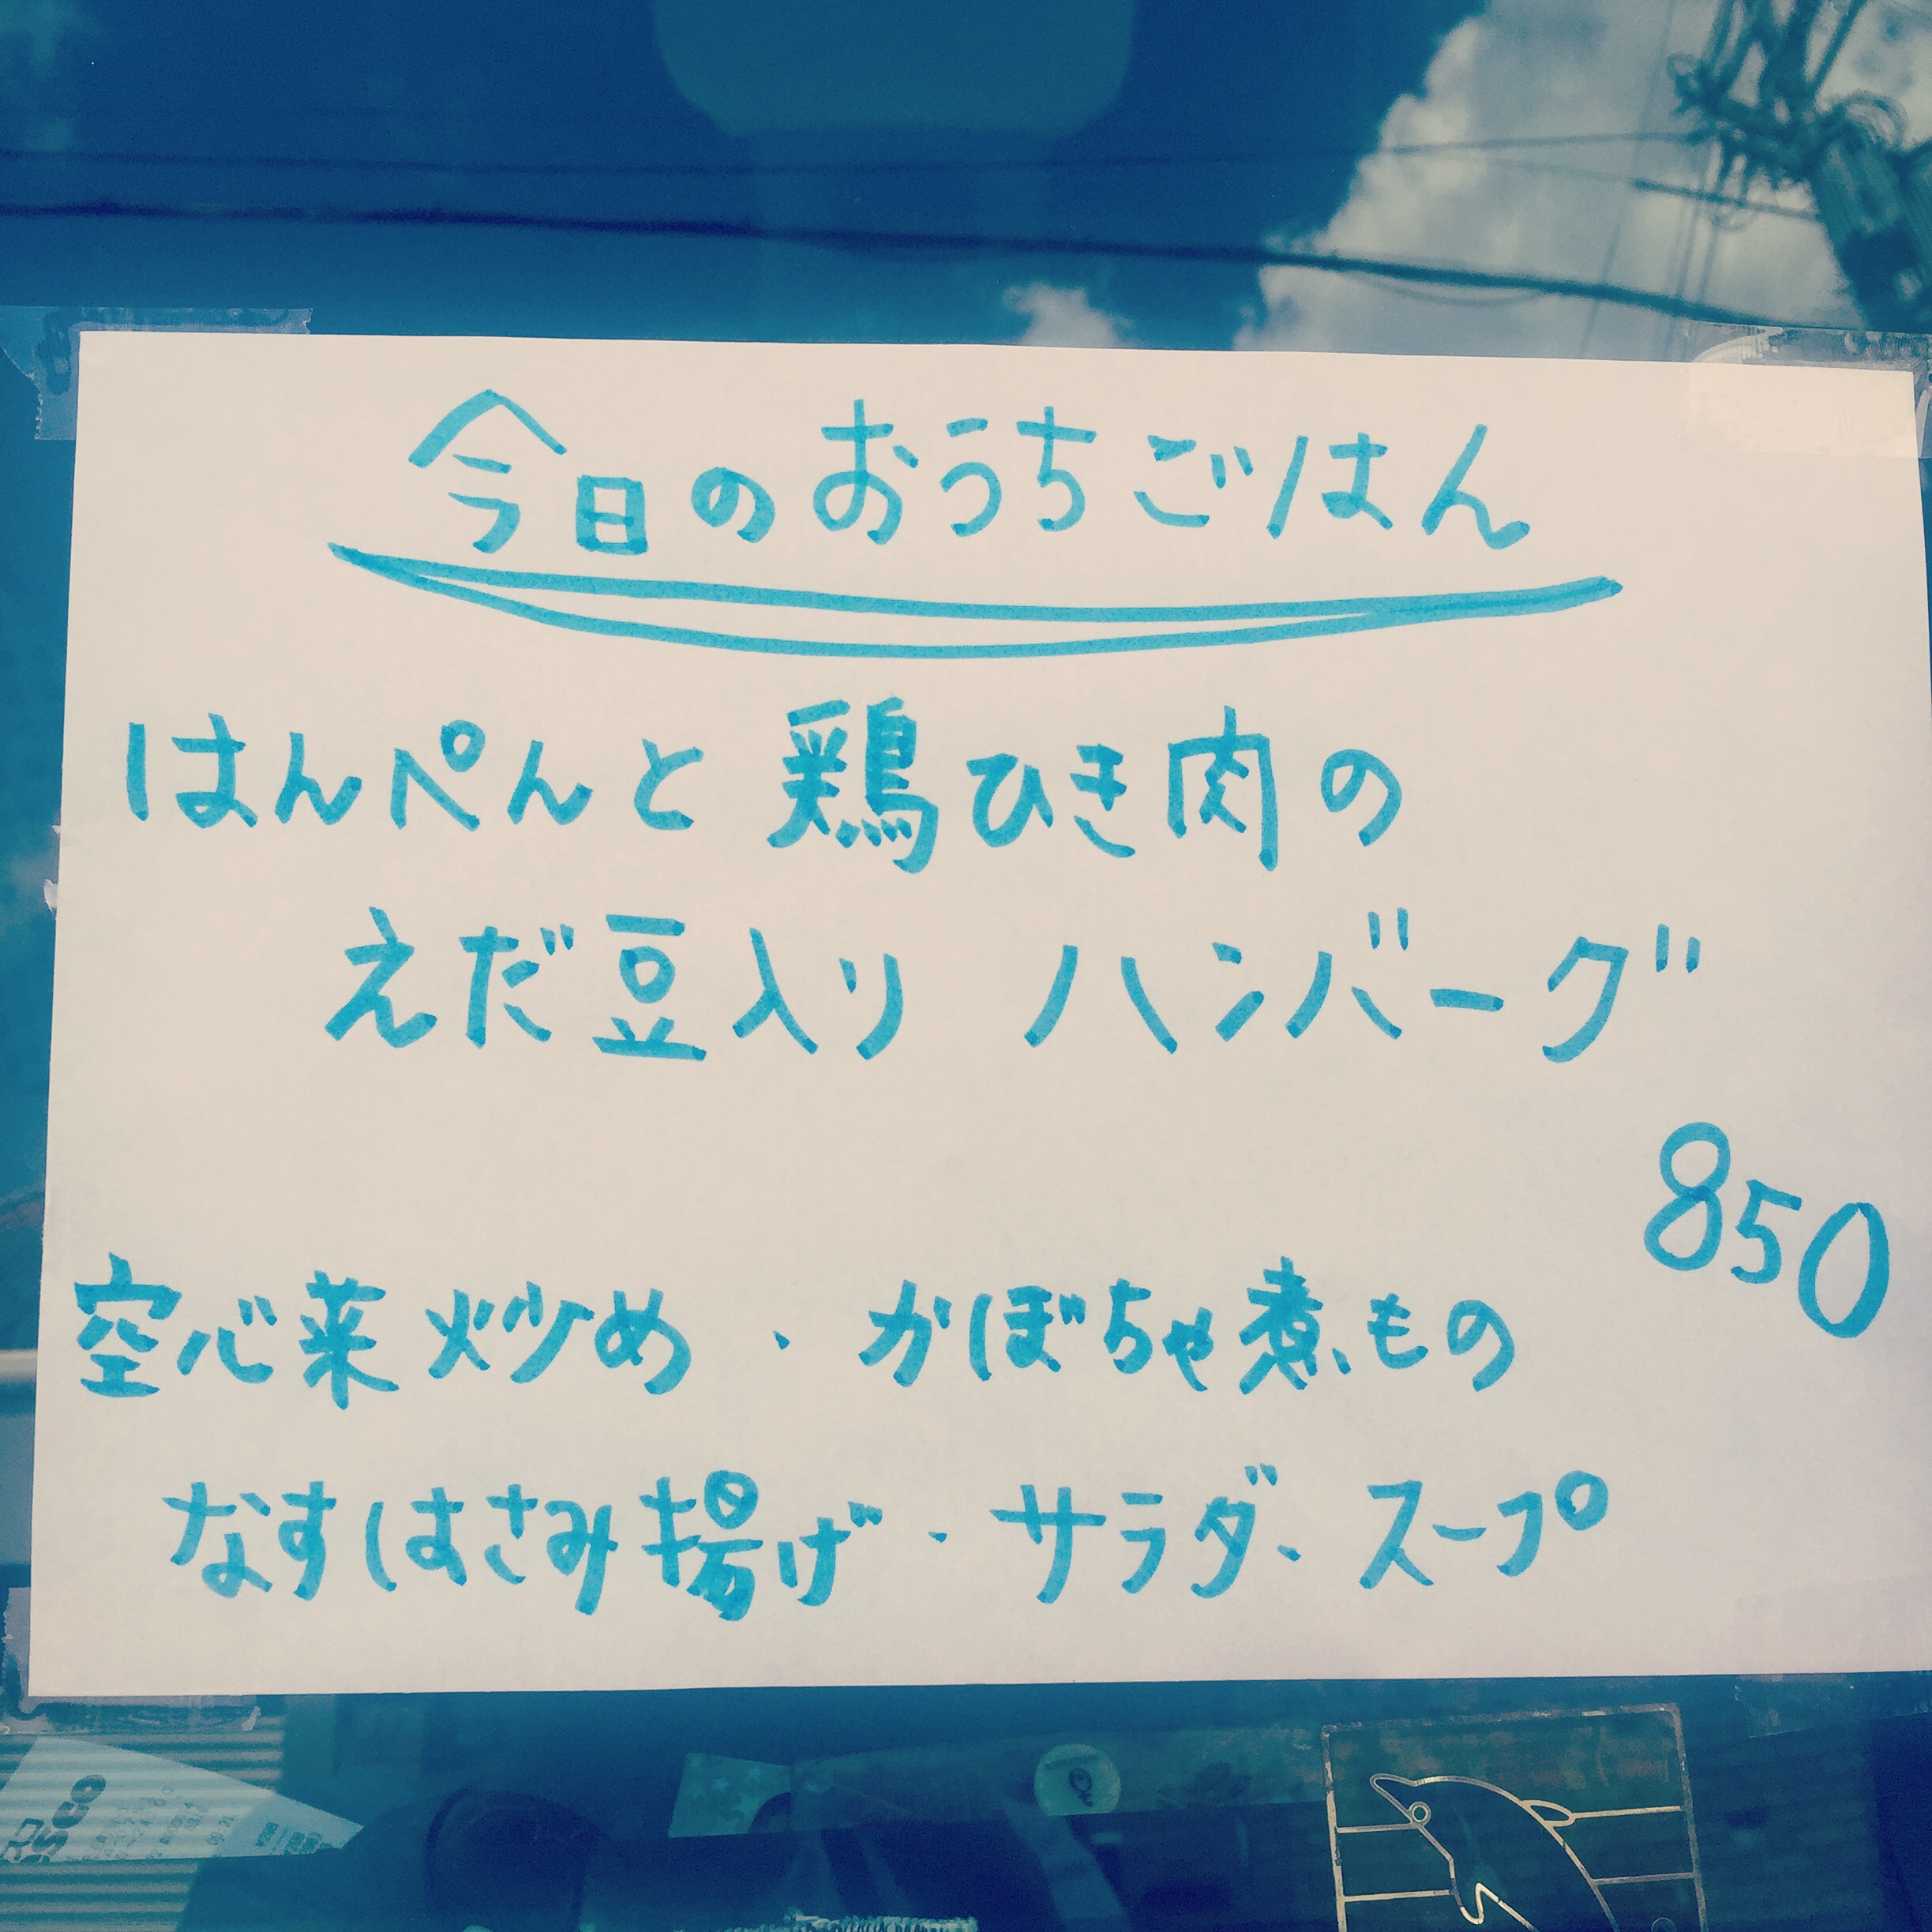 今日のおうちごはん
はんぺんと鶏ひき肉の
えだ豆入り ハンバーグ
850
空心菜炒め・かぼちゃ煮もの
なすはさみ揚げ・サラダ・スープ